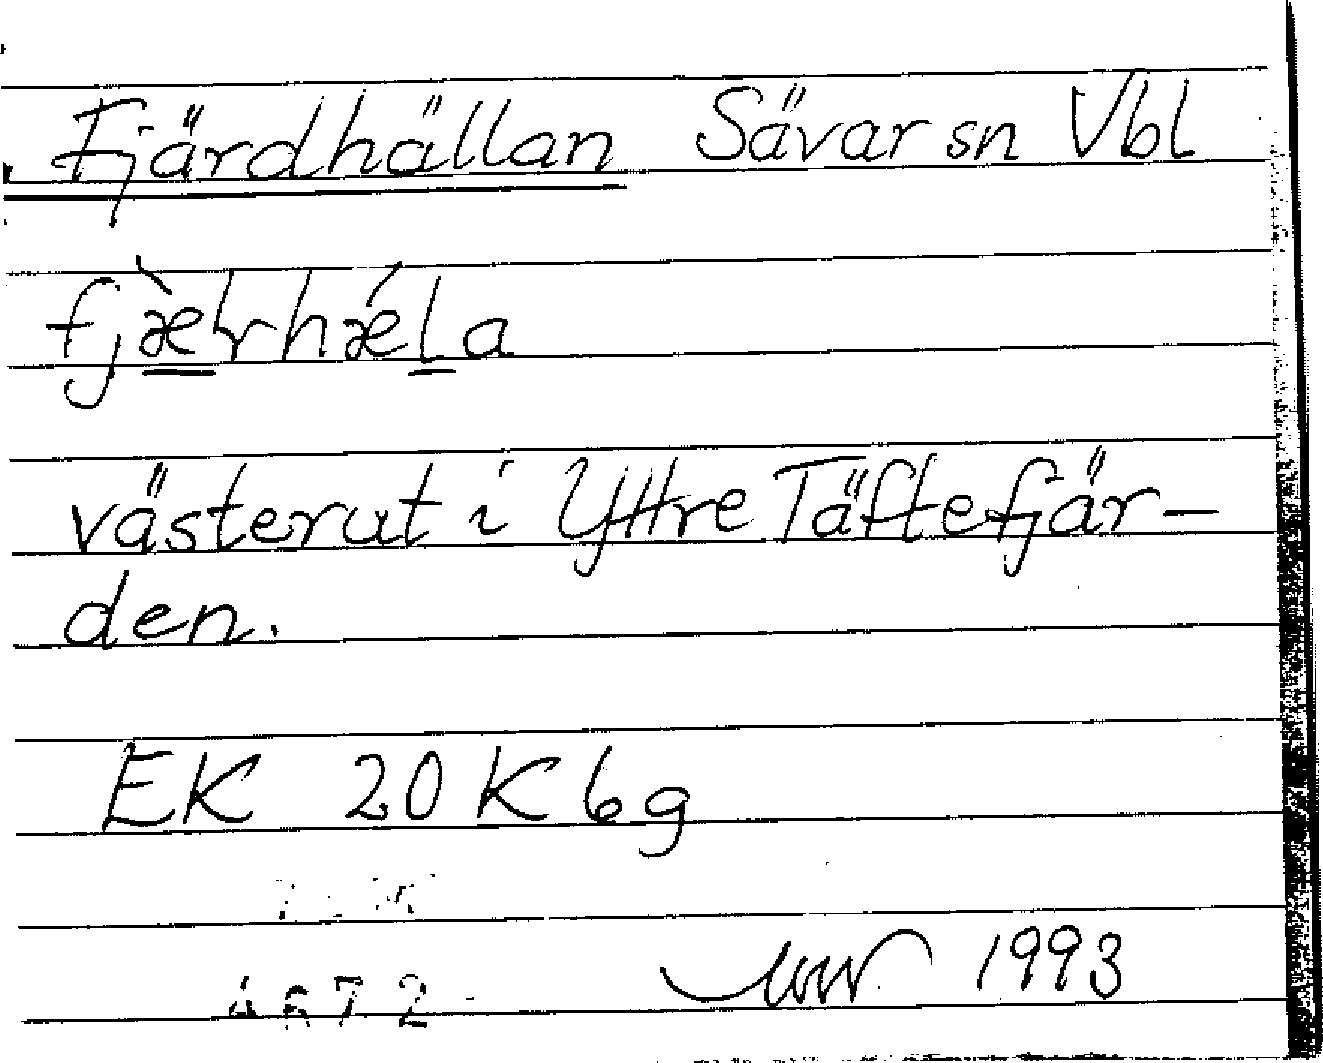 Fjärdhällan Sävar sn Vbl
fjæ̀rhǽla
västerut i Yttre Täftefjär-
den.
EK 20 K 6g
4672
1993